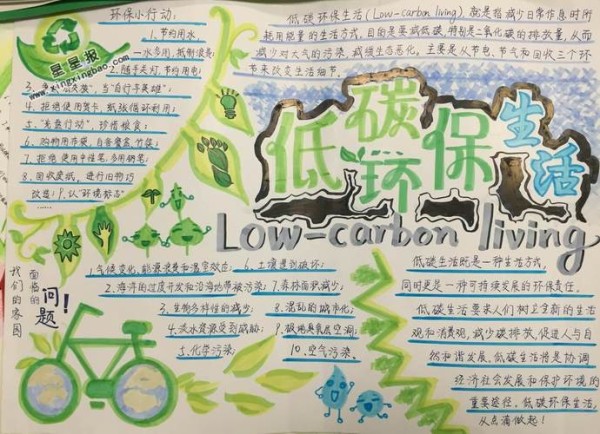 环保小行动:
1.节约用水,
一水多用,抵制浪费;
2.随手关灯,节约用电;
3.当"自行车英雄";
4.拒绝使用贺卡,纸张循环利用;
5."光盘行动",珍惜粮食;
6.购物用布袋,自备餐盒、竹筷;
7.拒绝使用中性笔,多用钢笔;
8.回收废纸,进行旧物巧
改造;9.认"环境标志"
星星报
www.xingxingbao.com
低碳环保生活(Low-carbon living),就是指减少日常作息时所
耗用能量的生活方式,目的是要减低碳,特别是二氧化碳的排放量,从而
减少对大气的污染,减缓生态恶化,主要是从节电、节气和回收三个环
节来改变生活细节。
低碳环保生活
Low-carbon living
我们的家园
面临的
问题!
1.气候变化,能源浪费和温室效应;
2.海洋的过度开发和沿海地带被污染;
3.生物多样性的减少;
4.淡水资源受到威胁;
5.化学污染;
6.土壤遭到破坏;
7.森林面积减少;
8.混乱的城市化;
9.极用臭氧层空洞;
10.空气污染.
低碳生活既是一种生活方式,
同时更是一种可持续发展的环保责任。
低碳生活要求人们树立全新的生活
观和消费观,减少碳排放,促进人与自
然和谐发展。低碳生活将是协调
经济社会发展和保护环境的
重要途径。低碳环保生活,
从点滴做起!